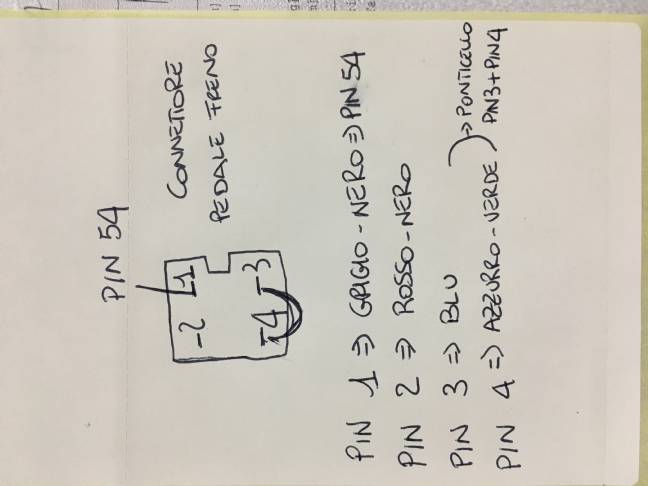 PIN 54
CONNETTORE
PEDALE FRENO
-2 1
4 3
PIN 1 => GRIGIO-NERO => PIN 54
PIN 2 => ROSSO-NERO
PIN 3 => BLU
PIN 4 => AZZURRO-VERDE
=> PONTICELLO
PIN3+PIN4